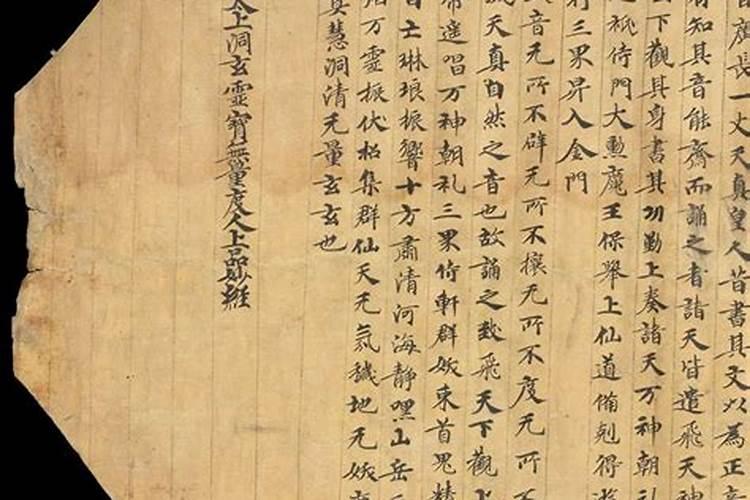 廣長一丈天真皇人昔書其文以為正音
有知其音能齋而誦之者諸天皆遣飛天神
下觀其身書其功勤上奏諸天万神朝礼
祇侍門大勳魔王保舉上仙道備剋得遊
行三界昇入金門
音无所不辟无所不禳无所不度无所不
成天真自然之音也故誦之致飛天下觀上
帝遥唱万神朝礼三界侍軒群妖束首鬼精
自亡琳琅振響十方肅清河海靜嘿山岳
烟万靈振伏招集群仙天无氛穢地无妖塵
冥慧洞清无量玄玄也
太上洞玄靈寶無量度人上品妙經